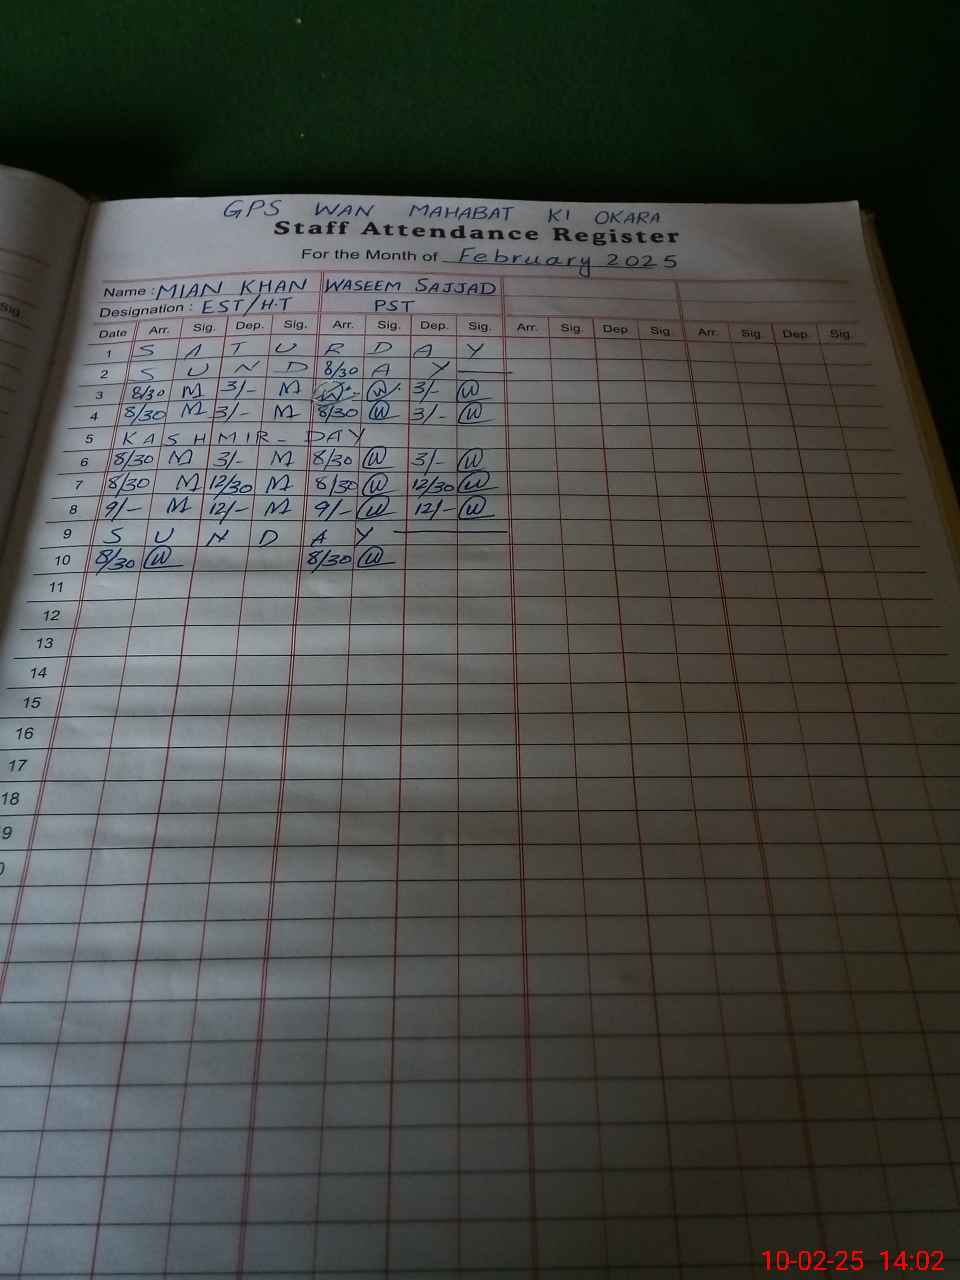 GPS WAN MAHABAT KI OKARA
Staff Attendance Register
For the Month of February 2025
Name : MIAN KHAN WASEEM SAJJAD
Designation : EST/H.T PST
Date Arr. Sig. Dep. Sig. Arr. Sig. Dep. Sig. Arr. Sig. Dep. Sig. Arr. Sig. Dep. Sig.
1 S A T U R D A Y
2 S U N D 8/30 A Y
3 8/30 M 3/- M W 3/- W
4 8/30 M 3/- M 8/30 W 3/- W
5 KASHMIR - DAY
6 8/30 M 3/- M 8/30 W 3/- W
7 8/30 M 12/30 M 8/30 W 12/30 W
8 9/- M 12/- M 9/- W 12/- W
9 S U N D A Y
10 8/30 W 8/30 W
11
12
13
14
15
16
17
18
9
Sig.
10-02-25 14:02